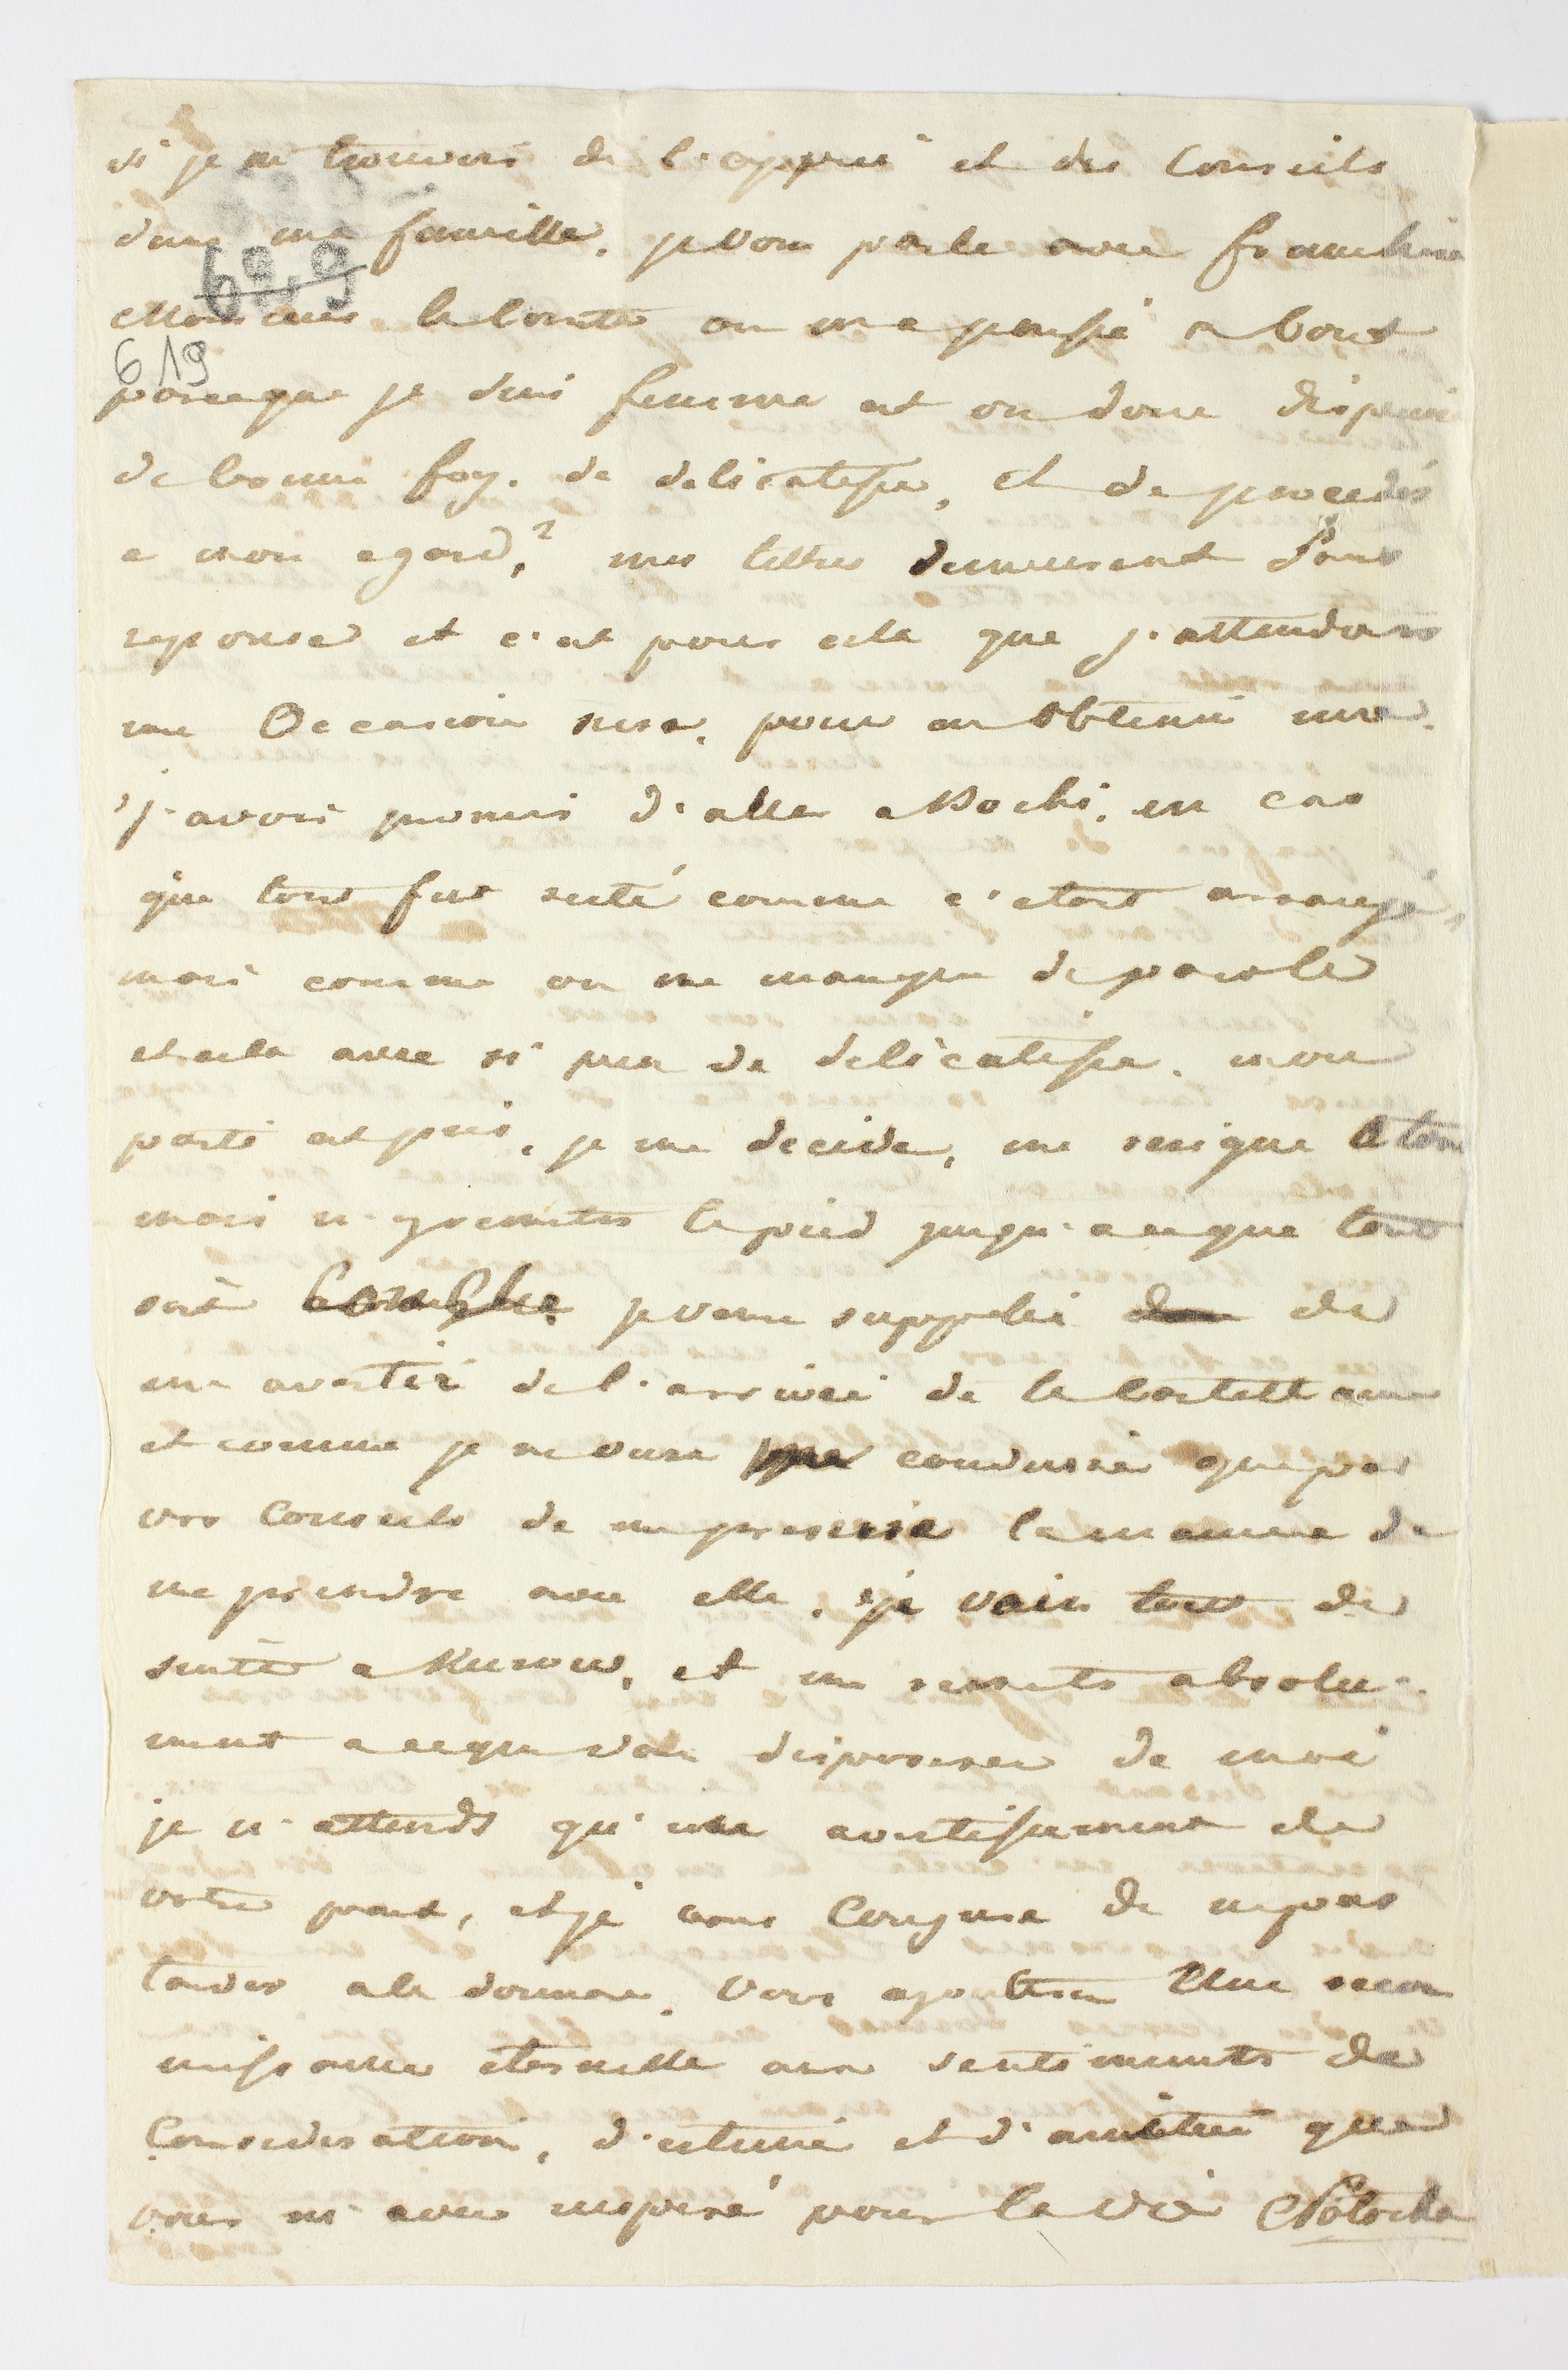 si je ne trouvois de l'appui et des Conseils
dans ma famille. je vous parle avec franchise
689
Monsieur le Comte on m'a poussé a bout
619
parceque je suis femme et on donc dispensé
de bonne foy. de delicatesse, et de procedés
a mon egard,? mes lettres demeurent sans
reponse et c'est pour cela que j'attendois
une Occasion sure, pour en Obtenir une.
j'avois promis d'aller a en cas
que tout fut resté comme c'etoit arrangé,
mais comme on me manque de parole
et cela avec si peu de delicatesse. mon
parti est pris, je me decide, me resigne a tout
mais n'y remettre le pied jusqu'a ce que tout
soit je vous supplie de
me avertir de l'arrivée de la Castellane
et comme je ne veux me conduire que par
vos Conseils de me prescrire la maniere de
me prendre avec elle. je vais tout de
suite a Kurow, et me remets absolu-
ment a ce que vous disposerez de moi
je n'attends qu'un avertissement de
votre part, et je vous Conjure de ne pas
tarder a le donner. Vous ajouterez Une recon
naissance eternelle aux sentiments de
Consideration, d'estime et d'amitié que
vous m'avez inspiré pour la vie Potocka